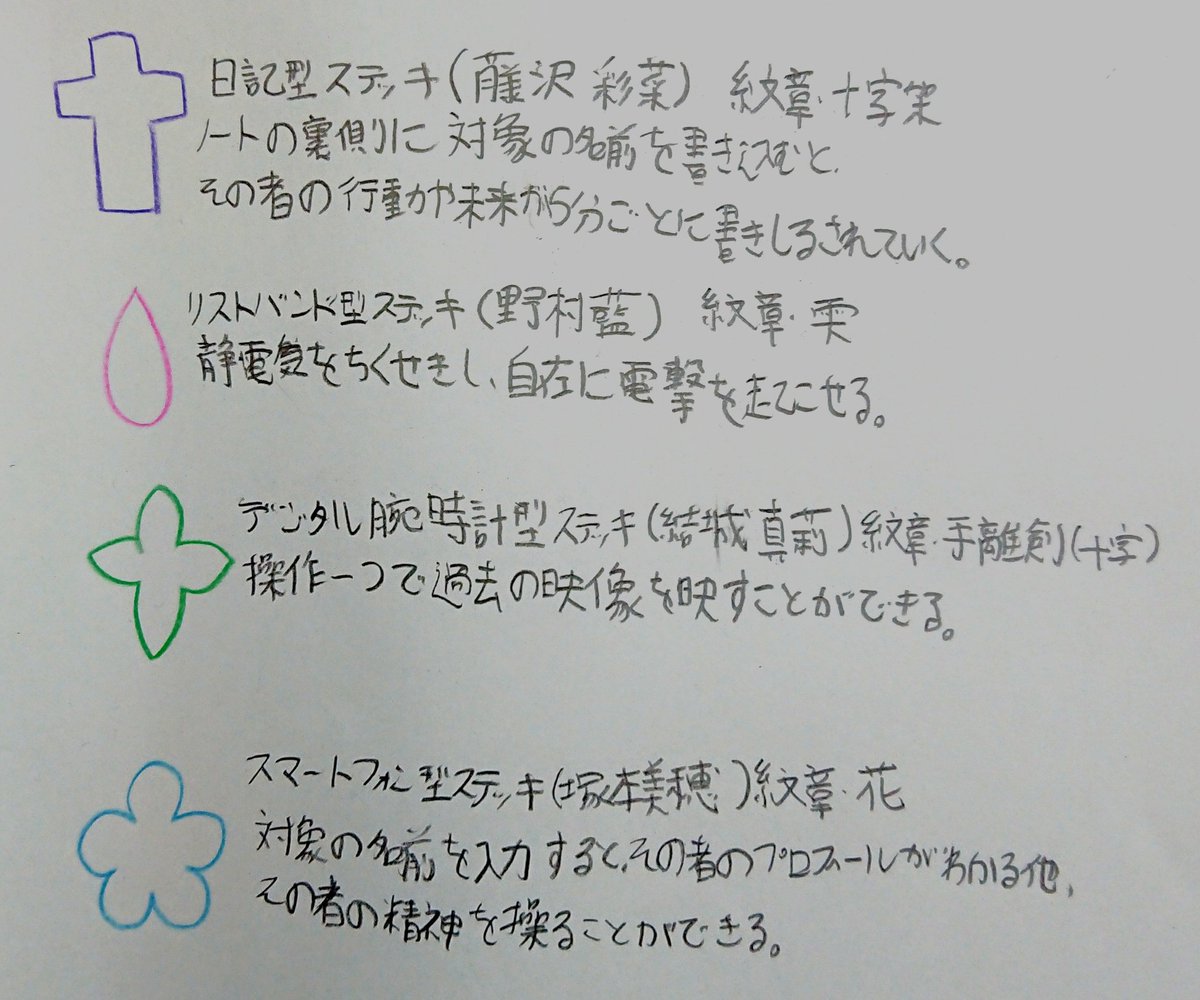 日記型ステッキ(藤沢 彩菜) 紋章・十字架
ノートの裏側に対象の名前を書きこむと、
その者の行動や未来が5分ごとに書きしるされていく。
リストバンド型ステッキ(野村藍) 紋章・雫
静電気をちくせきし、自在に電撃を起こせる。
デジタル腕時計型ステッキ(結城真莉)紋章・手離剣(十字)
操作一つで過去の映像を映すことができる。
スマートフォン型ステッキ(塚本美穂)紋章・花
対象の名前を入力すると、その者のプロフィールがわかる他、
その者の精神を操ることができる。